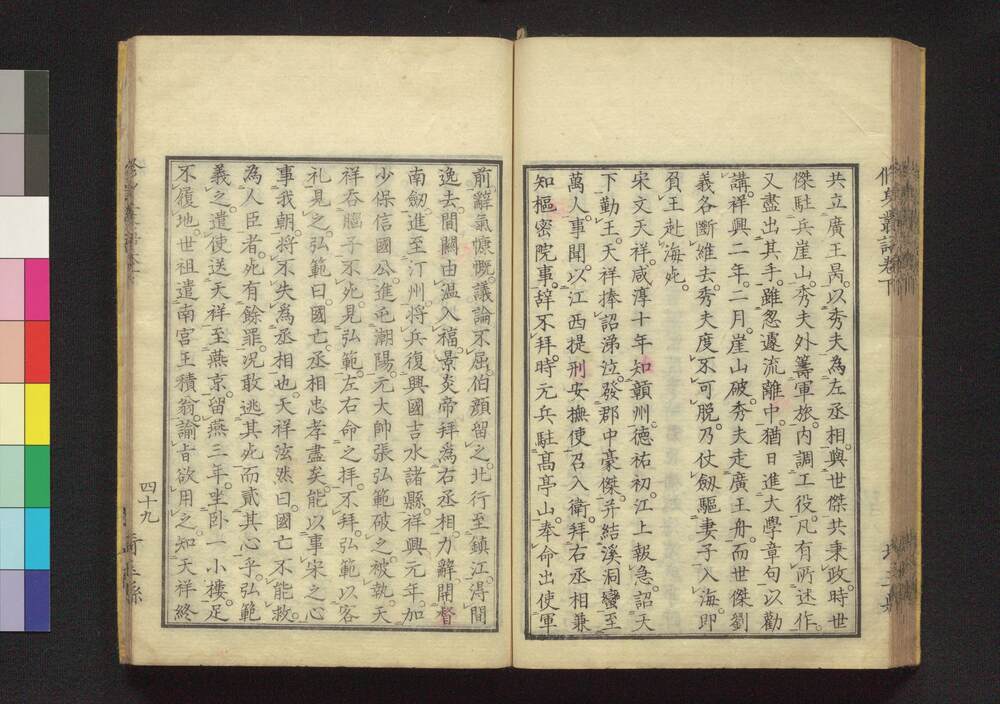 共立廣王昺。以秀夫為左丞相。與世傑共秉政。時世
傑駐兵崖山。秀夫外籌軍旅。內調工役。凡有所述作。
又盡出其手。雖忽遽流離中。猶日進大學章句以勸
講。祥興二年。二月。崖山破。秀夫走廣王舟。而世傑劉
義各斷維去。秀夫度不可脫。乃仗劔驅妻子入海。即
負王赴海死。
宋文天祥。咸淳十年知贛州。德祐初。江上報急。詔天
下勤王。天祥捧詔涕泣。發郡中豪傑。并結溪洞蠻。至
萬人。事聞。以江西提刑安撫使召入衛。拜右丞相兼
知樞密院事。辭不拜。時元兵駐高亭山。奉命出使軍
前。辭氣慷慨。議論不屈。伯顏留之。北行至鎮江。得間
逸去。間關由溫入福。景炎帝拜為右丞相。力辭。開督
南劔。進至汀州。將兵復興國吉水諸縣。祥興元年。加
少保信國公。進屯潮陽。元大帥張弘範破之。被執。天
祥吞腦子不死。見弘範。左右命之拜。不拜。弘範以客
禮見之。弘範曰。國亡。丞相忠孝盡矣。能以事宋之心
事我朝。將不失為丞相也。天祥泫然曰。國亡不能救。
為人臣者。死有餘罪。況敢逃其死而貳其心乎。弘範
義之。遣使送天祥至燕京。留燕三年。坐臥一小樓。足
不履地。世祖遣南宮王積翁。諭旨欲用之。知天祥終
四十九